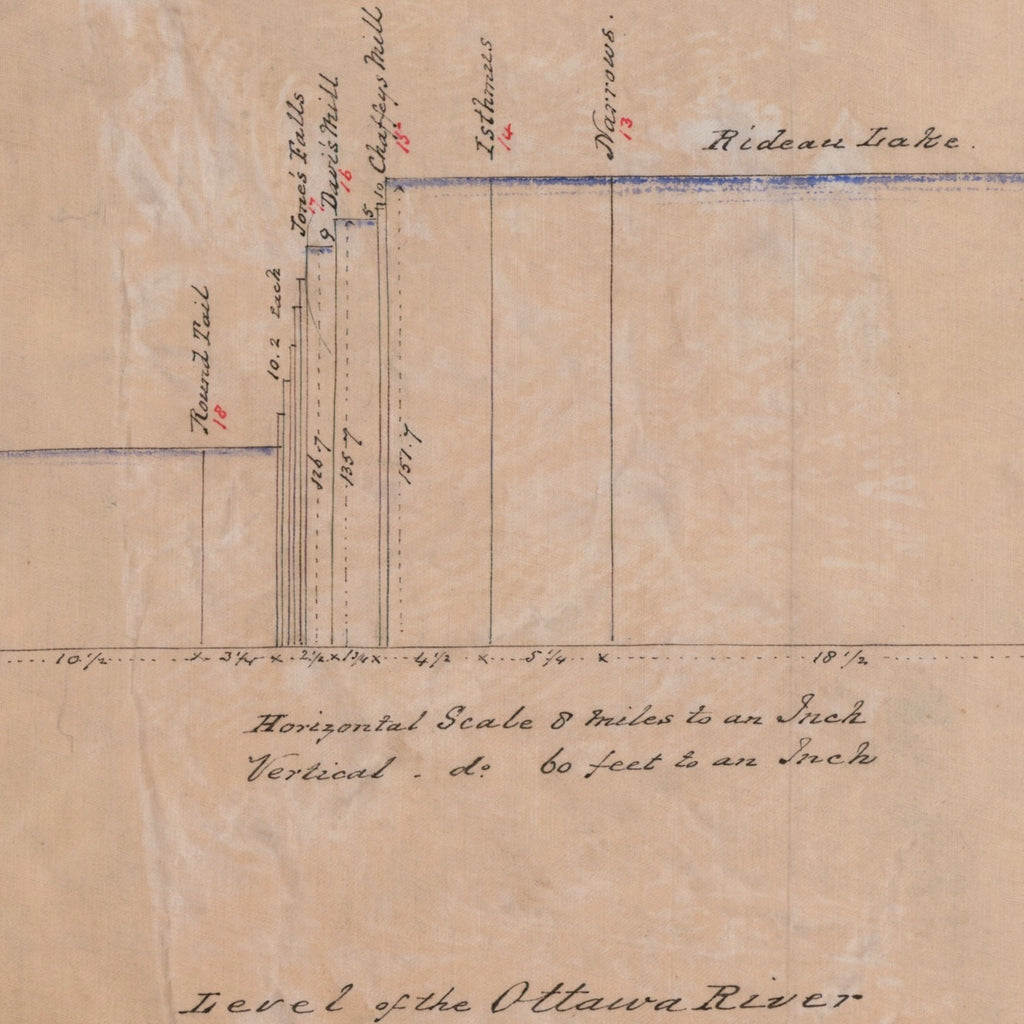 Round Tail
18
10.2 Each
Jones Falls
17
9
Davis Mill
16
5
10
Chaffeys Mill
15
Isthmus
14
Narrows.
13
Rideau Lake.
126.7
135.7
151.7
10 1/2
2 1/2
1 3/4
4 1/2
5 1/4
18 1/2
Horizontal Scale 8 Miles to an Inch
Vertical . do. 60 feet to an Inch
Level of the Ottawa River